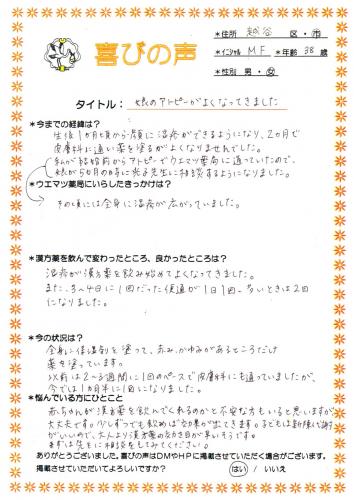 喜びの声
*住所 越谷 区・市
*イニシャル MF *年齢 38 歳
*性別 男・女
タイトル： 娘のアトピーがよくなってきました
*今までの経緯は？
生後1か月頃から顔に湿疹ができるようになり、2か月で
皮膚科に通い薬を塗るがよくなりませんでした。
私が結婚前からアトピーでウエマツ薬局に通っていたので、
娘が5か月の時に光子先生に相談するようになりました。
*ウエマツ薬局にいらしたきっかけは？
その頃には全身に湿疹が広がっていました。
*漢方薬を飲んで変わったところ、良かったところは？
湿疹が漢方薬を飲み始めてよくなってきました。
また、3～4日に1回だった便通が1日1回、多いときは2回
になりました。
*今の状況は？
全身に保湿剤を塗って、赤み、かゆみがあるところだけ
薬を塗っています。
以前は2～3週間に1回のペースで皮膚科にも通っていましたが、
今では1か月半に1回になりました。
*悩んでいる方にひとこと
赤ちゃんが漢方薬を飲んでくれるのかと不安な方もいると思いますが、
大丈夫です。少しずつでも飲めば効果が出てきます。子どもは新陳代謝
がいいので、大人より漢方薬の効き目が早いそうです。
まずは先生に相談をしてみてください。
ありがとうございました。喜びの声はDMやHPに掲載させていただく場合がございます。
掲載させていただいてよろしいですか？ はい / いいえ